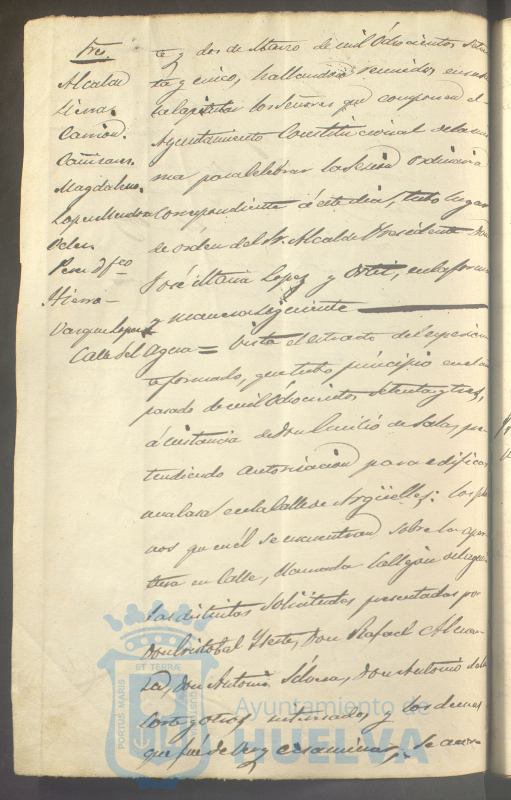 Sres
Alcalde
Sierra.
Carrion.
Cañizares.
Magdaleno.
Lopez Mendoza
Perez D. Fco
Hierro
Vazquez Lopez
te y dos de Marzo de mil Ochocientos seten
ta y cinco, hallandose reunidos en su sa
la Capitular los Señores que componen el
Ayuntamiento Constitucional de la mis
ma para celebrar la Sesion Ordinaria
correspondiente á este dia, tubo lugar
de orden del Sr. Alcalde Presidente Don
José Maria Lopez y Ortiz, en la forma
y manera siguiente
Calle del Agua = Visto el estado del espedien
te formado, que tubo principio en el año
pasado de mil Ochocientos setenta y tres,
á instancia de Don Emilio de Salas, pre
tendiendo autorizacion para edificar
una casa en la Calle de Argüelles: los pla
nos que en él se encuentran sobre la aper
tura en Calle, llamada Callejon del agua
las distintas solicitudes presentadas por
Don Cristobal Don Rafael
Don Antonio Don Antonio de la
y otros interesados, y los demas
que fué de ver y ecsaminar, Se acor
PORTUS MARIS
ET TERRÆ
Ayuntamiento de
HUELVA